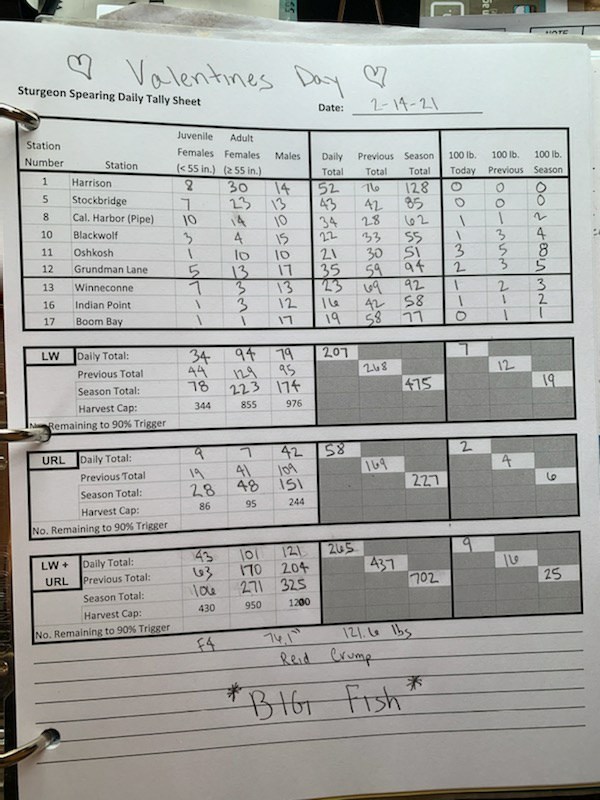 NOTE
♡ Valentines Day ♡
Sturgeon Spearing Daily Tally Sheet Date: 2-14-21
Station Number Station Juvenile Females (< 55 in.) Adult Females (≥ 55 in.) Males Daily Total Previous Total Season Total 100 lb. Today 100 lb. Previous 100 lb. Season
1 Harrison 8 30 14 52 76 128 0 0 0
5 Stockbridge 7 23 13 43 42 85 0 0 0
8 Cal. Harbor (Pipe) 10 14 10 34 28 62 1 1 2
10 Blackwolf 3 4 15 22 33 55 1 3 4
11 Oshkosh 1 10 10 21 30 51 3 5 8
12 Grundman Lane 5 13 17 35 59 94 2 3 5
13 Winneconne 7 3 13 23 69 92 1 2 3
16 Indian Point 1 3 12 16 42 58 1 1 2
17 Boom Bay 1 1 17 19 58 77 0 1 1
LW Daily Total: 34 94 79 207 7
Previous Total 44 129 95 268 12
Season Total: 78 223 174 475 19
Harvest Cap: 344 855 976
No. Remaining to 90% Trigger
URL Daily Total: 9 7 42 58 2
Previous Total 19 41 109 169 4
Season Total: 28 48 151 227 6
Harvest Cap: 86 95 244
No. Remaining to 90% Trigger
LW + URL Daily Total: 43 101 121 265 9
Previous Total: 63 170 204 437 16
Season Total: 106 271 325 702 25
Harvest Cap: 430 950 1200
No. Remaining to 90% Trigger
F4 76.1" 121.6 lbs
Reid Crump
*BIG Fish*